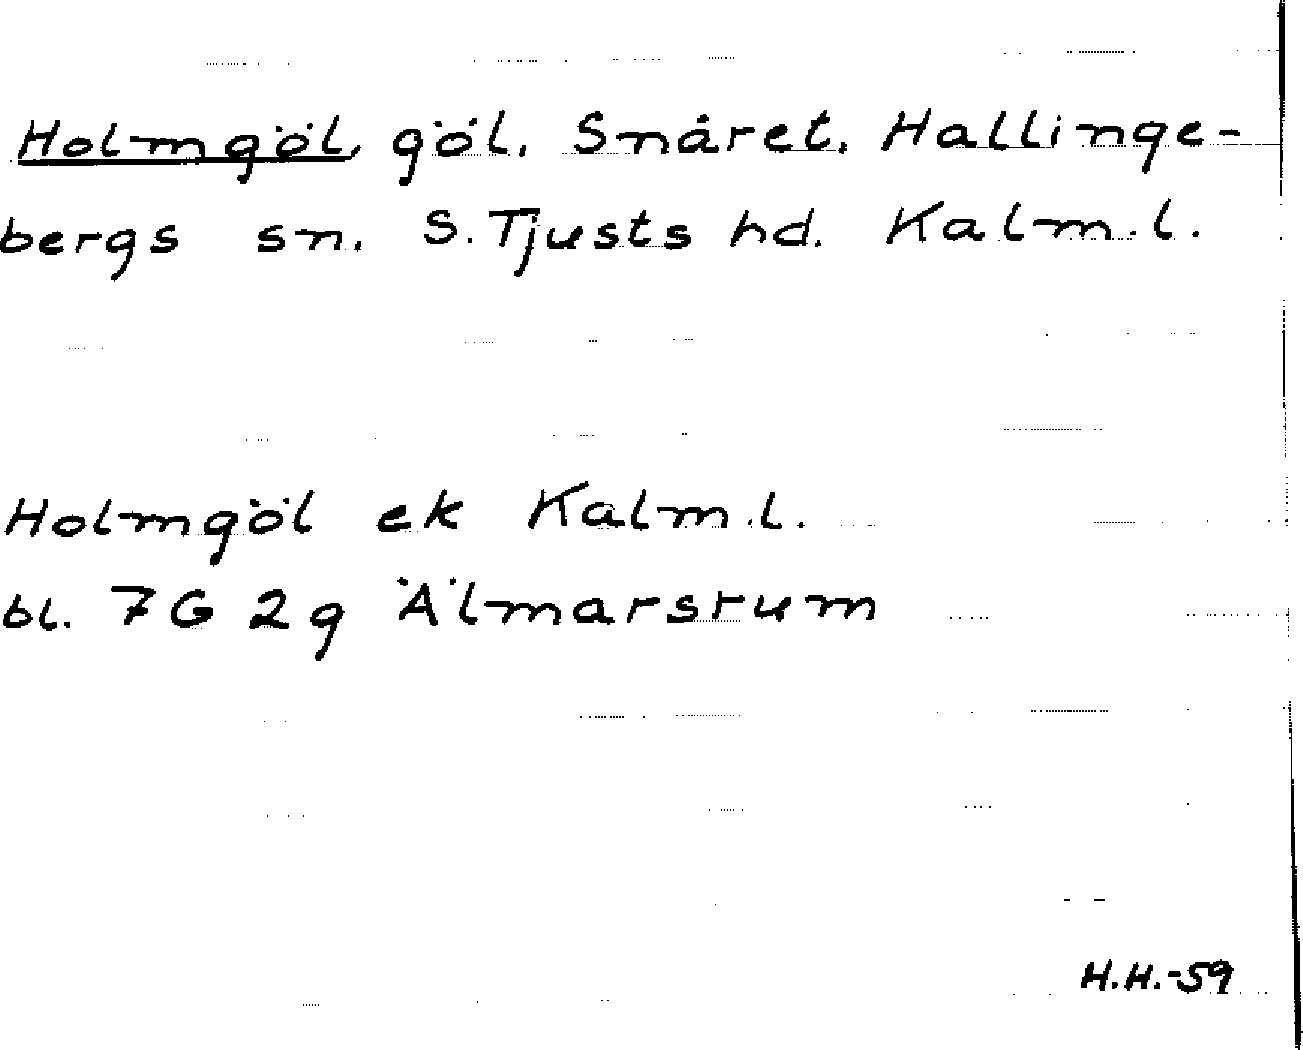 Holmgöl, göl. Snåret. Hallinge-
bergs sn. S. Tjusts hd. Kalm.l.
Holmgöl ek Kalm.l.
bl. 7G 2g Älmarsrum
H.H.-59